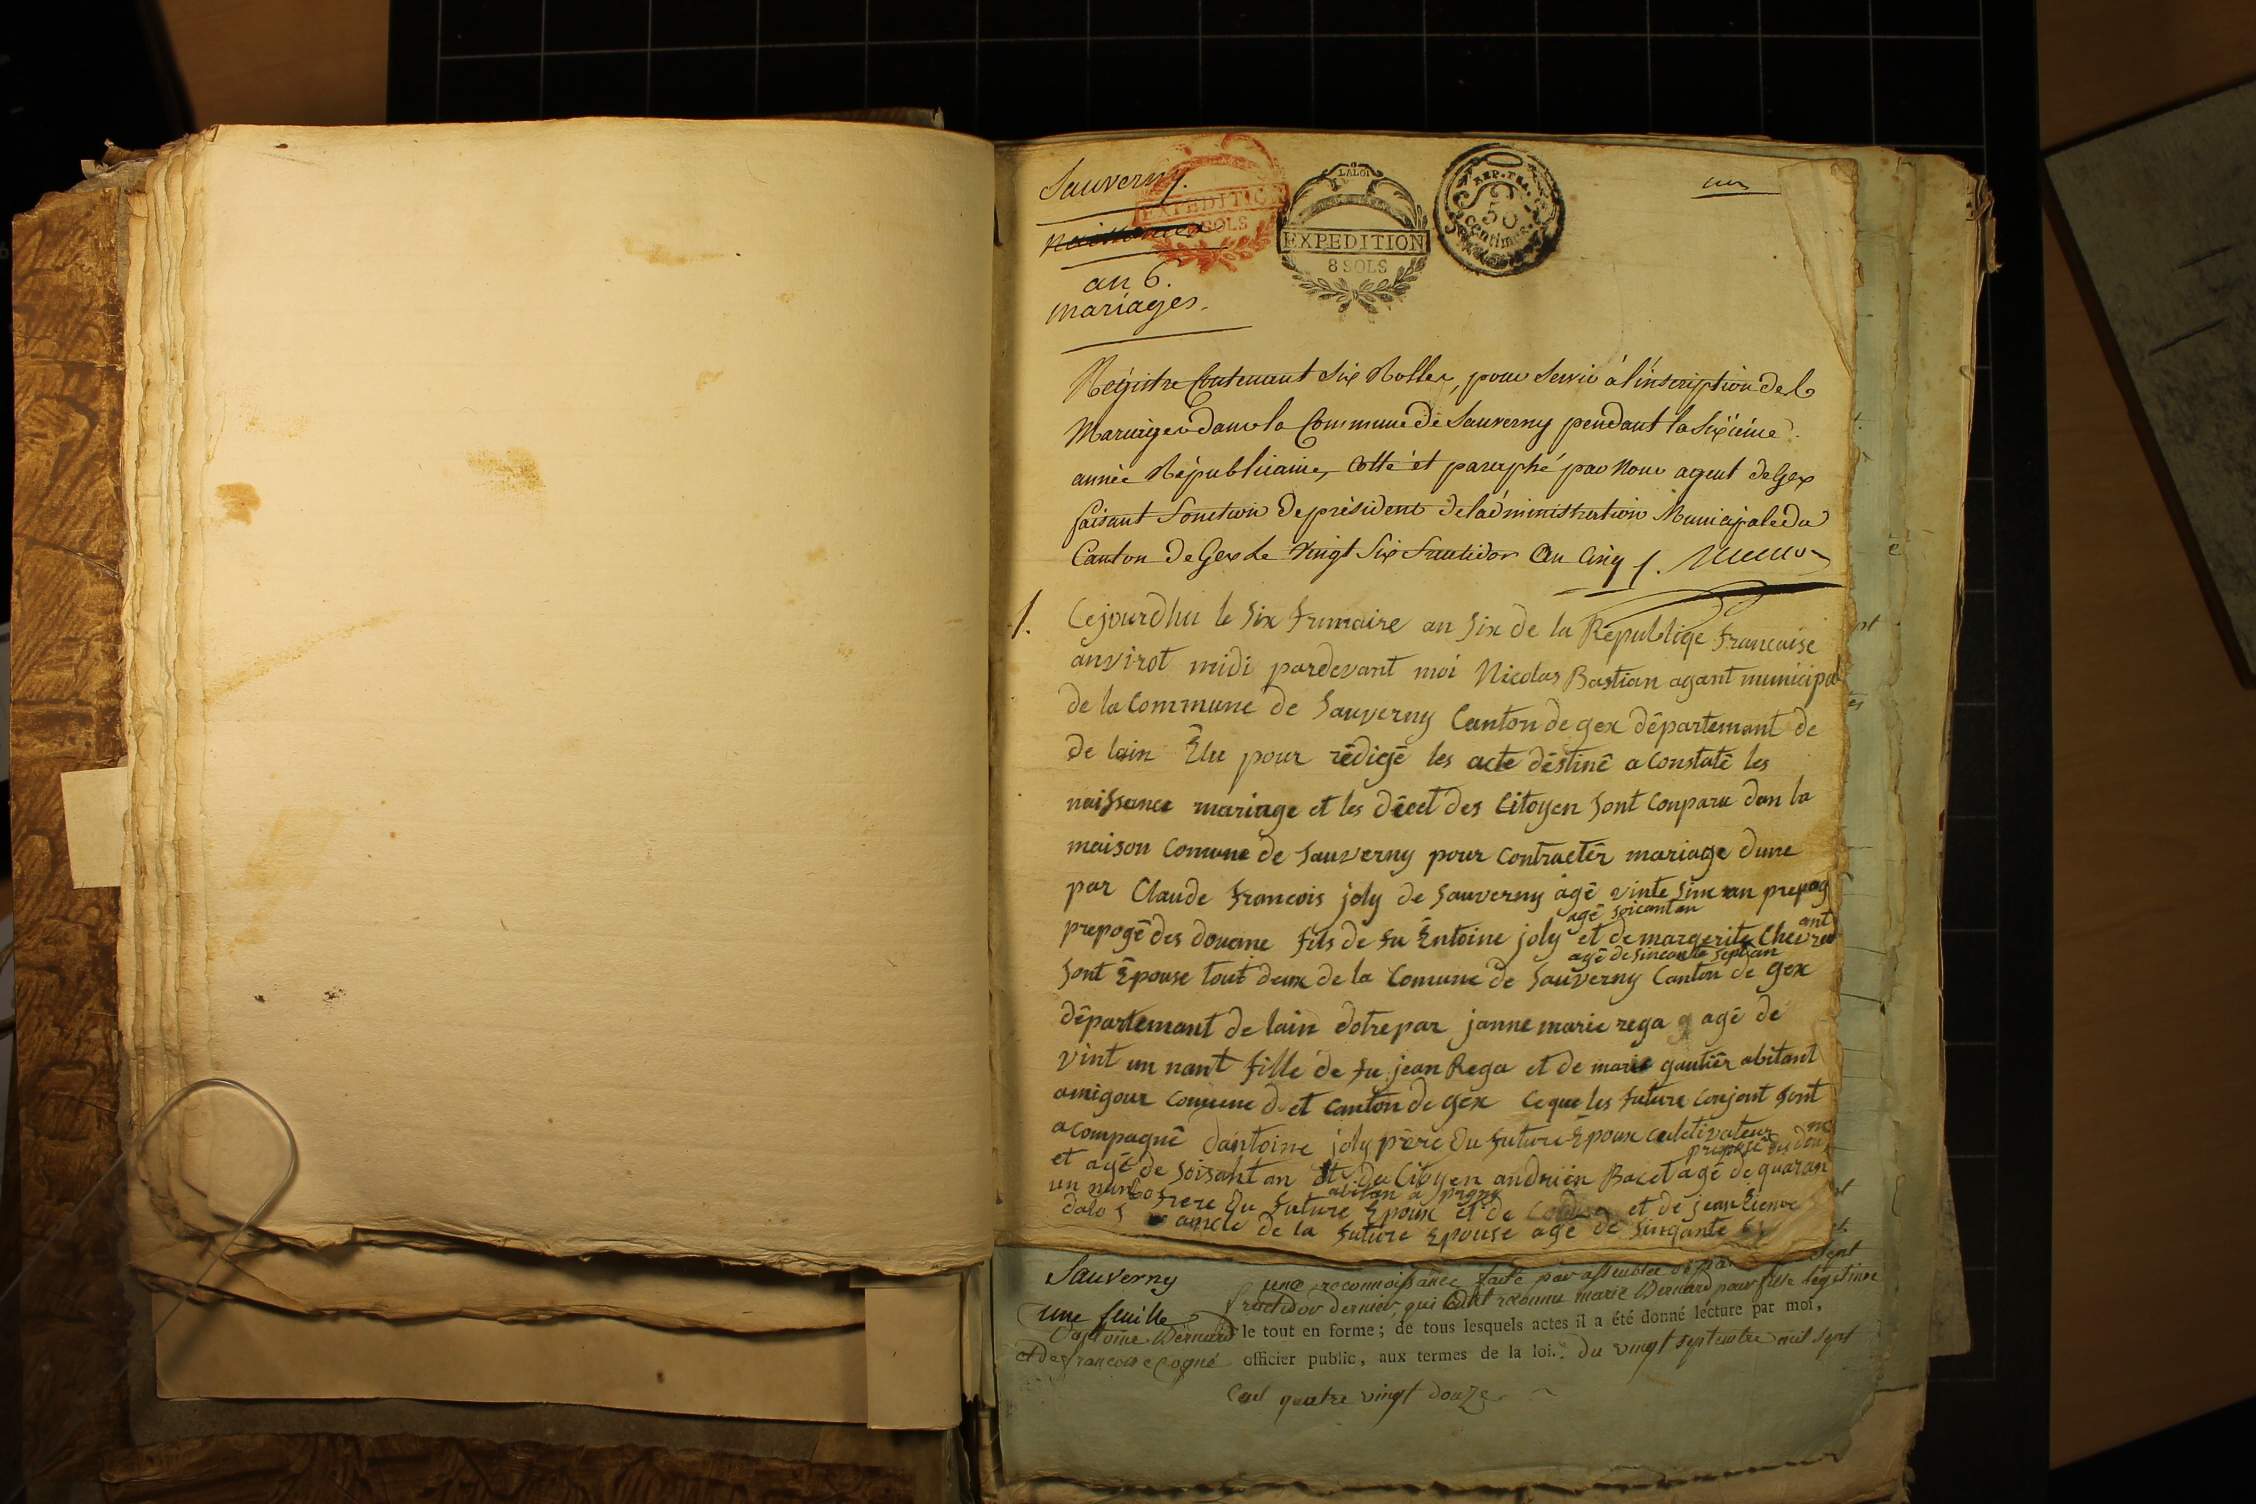 Sauverny.
EXPEDITION
8 SOLS
LA LOI
EXPEDITION
8 SOLS
REP. FRA.
50
Centimes
un
naissances
an 6.
mariages.
Régistre Contenant Six Rolles, pour Servir à l'inscription des
Mariages dans la Commune de Sauverny pendant la Sixième
année Républicaine, Cotté et paraphé par Nous agent de Gex
faisant Fonction de président de l'administration Municipale du
Canton de Gex le Vingt Six Fructidor An Cinq
1. Cejourdhui le Six frimaire an Six de la Republiqe francaise
anvirot midi pardevant moi Nicolas Bastian agant municipal
de la Commune de Sauverny Canton de gex département de
de lain Élu pour rédigé les acte déstiné a Constaté les
naissance mariage et les décet des Citoyen Sont Conparu dan la
maison Comune de Sauverny pour Contractér mariage dune
par Claude francois joly de Sauverny agé vinte Sinc an prepog
agé Soicantan
prepogé des douane fils de fu Entoine joly et de margerite Chevrant
agé de Sincante Septan
Sont Épouse tout deux de la Comune de Sauverny Canton de gex
départemant de lain dotrepar janne marie rega agé de
vint un nant fille de fu jean Rega et de marie gautiér abitant
amigour Comune d et Canton de gex Ceque les future Conjont Sont
acompagné dantoine joly père du future Époux cultivateur
preposé des doua ne
et agé de Soisant an et du Citoyen andrién Bacet agé de quaran
abitan a prony
un nan bo frere du future Époux et de et de jean Eienne
dalo S oncle de la future Epouse agé de Sinqante
Sauverny
une feuille
D'antoine Bernard
et de francoise Cogné
une reconnoissance faite par assemblée de Sept
fructidor dernier, qui ont reconnu marie Bernard pour fille légitime
le tout en forme; de tous lesquels actes il a été donné lecture par moi,
officier public, aux termes de la loi. du vingt septembre mil sept
Cent quatre vingt douze